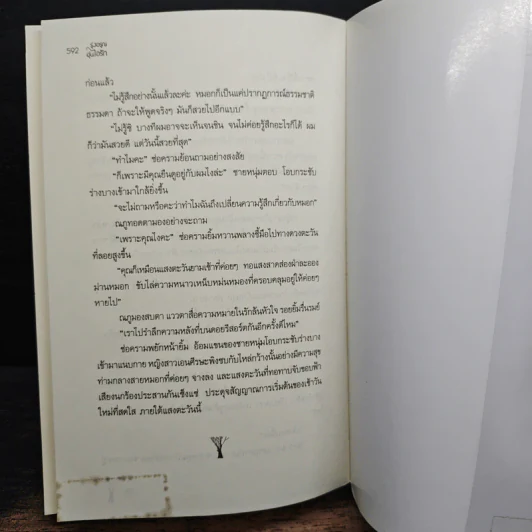 592
ก่อนแล้ว
"ไม่รู้สึกอย่างนั้นแล้วละค่ะ หมอกก็เป็นแค่ปรากฏการณ์ธรรมชาติ
ธรรมดา ถ้าจะให้พูดจริงๆ มันก็สวยไปอีกแบบ"
"ไม่รู้ซิ บางทีผมอาจจะเห็นจนชิน จนไม่ค่อยรู้สึกอะไรก็ได้ ผม
ก็ว่ามันสวยดี แต่วันนี้สวยที่สุด"
"ทำไมคะ" ช่อครามย้อนถามอย่างสงสัย
"ก็เพราะมีคุณยืนดูอยู่กับผมไงล่ะ" ชายหนุ่มตอบ โอบกระชับ
ร่างบางเข้ามาใกล้ยิ่งขึ้น
"จะไม่ถามหรือคะว่าทำไมฉันถึงเปลี่ยนความรู้สึกเกี่ยวกับหมอก"
ณภูทอดตามองอย่างจะถาม
"เพราะคุณไงคะ" ช่อครามยิ้มหวานพลางชี้มือไปทางดวงตะวัน
ที่ลอยสูงขึ้น
"คุณก็เหมือนแสงตะวันยามเช้าที่ค่อยๆ ทอแสงสาดส่องฝ่าละออง
ม่านหมอก ขับไล่ความหนาวเหน็บหม่นหมองที่ครอบคลุมอยู่ให้ค่อยๆ
หายไป"
ณภูมองสบตา แววตาสื่อความหมายในรักล้นหัวใจ รอยยิ้มรื่นรมย์
"เราไปรำลึกความหลังที่บนดอยรีสอร์ตกันอีกครั้งดีไหม"
ช่อครามพยักหน้ายิ้ม อ้อมแขนของชายหนุ่มโอบกระชับร่างบาง
เข้ามาแนบกาย หญิงสาวเอนศีรษะพิงซบกับไหล่กว้างนั้นอย่างมีความสุข
ท่ามกลางสายหมอกที่ค่อยๆ จางลง และแสงตะวันที่ทอทาบจับขอบฟ้า
เสียงนกร้องประสานกันเซ็งแซ่ ประดุจสัญญาณการเริ่มต้นของเช้าวัน
ใหม่ที่สดใส ภายใต้แสงตะวันนี้